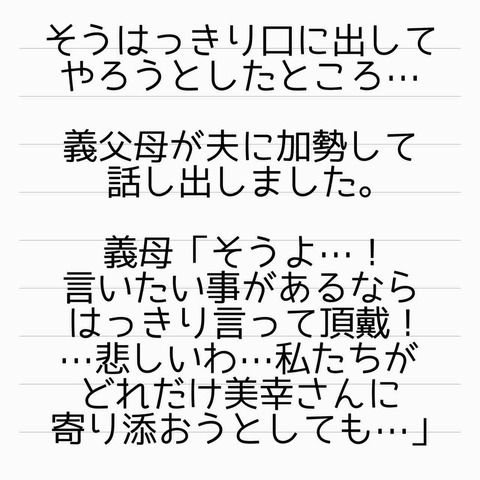 そうはっきり口に出して
やろうとしたところ…
義父母が夫に加勢して
話し出しました。
義母「そうよ…！
言いたい事があるなら
はっきり言って頂戴！
…悲しいわ…私たちが
どれだけ美幸さんに
寄り添おうとしても…」